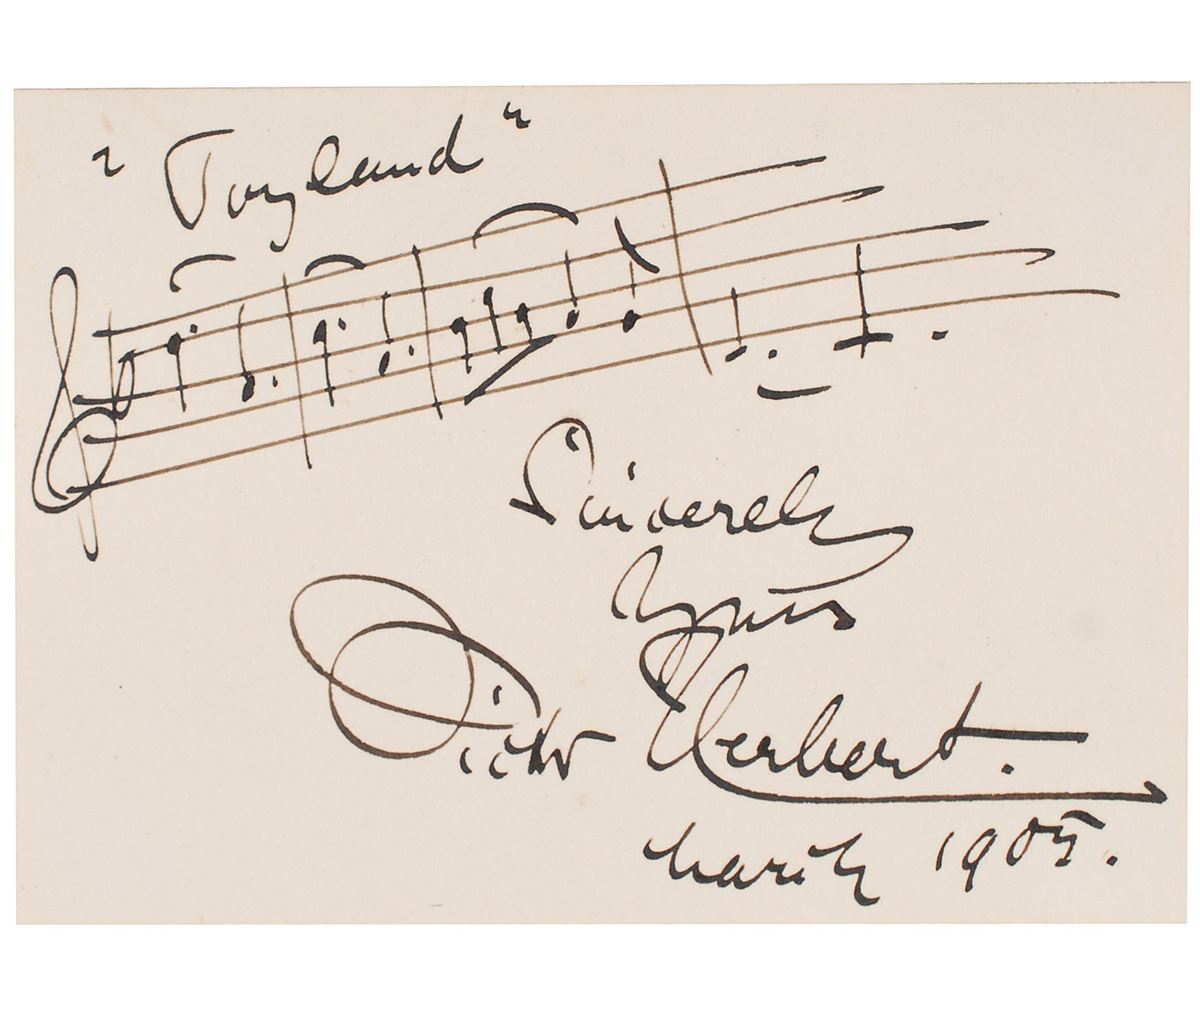 "Toyland"
Sincerely
Yours
Victor Herbert.
March 1905.